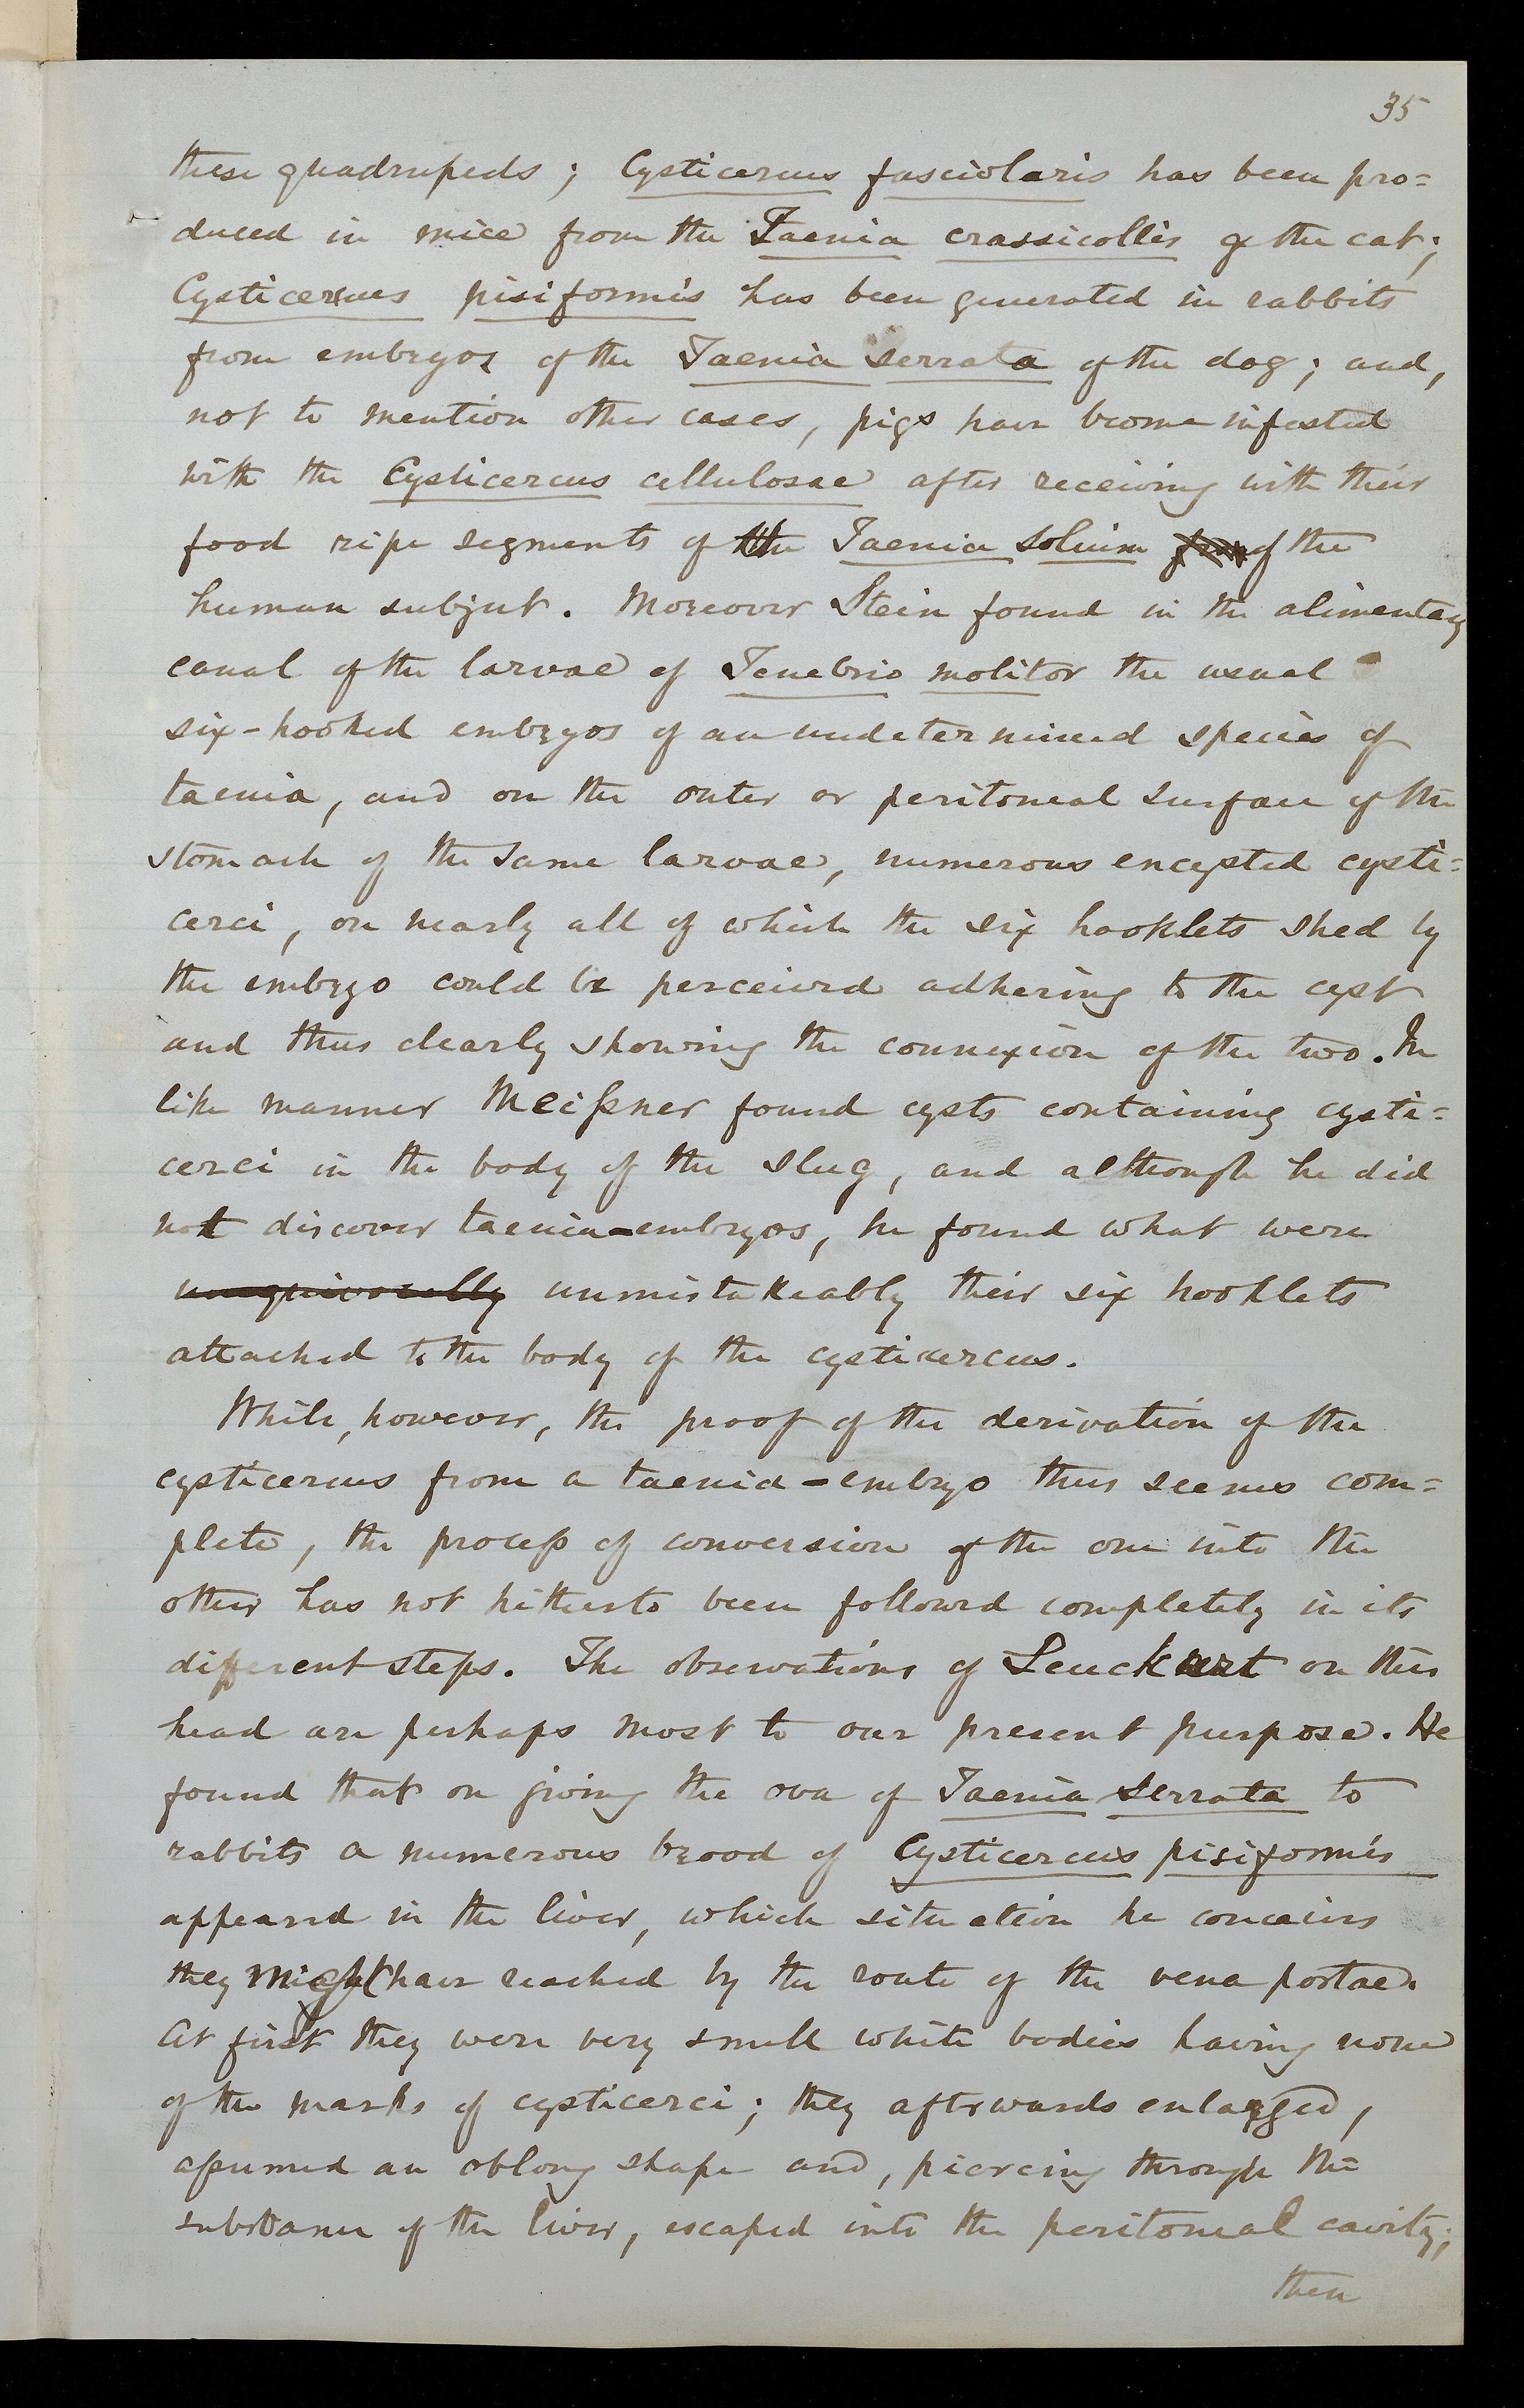 35
these quadrupeds; Cysticercus fasciolaris has been pro=
duced in mice from the Taenia crassicollis of the cat;
Cysticercus pisiformis has been generated in rabbits
from embryos of the Taenia serrata of the dog; and,
not to mention other cases, pigs have become infested
with the Cysticercus cellulosae after receiving with their
food ripe segments of the Taenia solium from of the
human subject. Moreover Stein found in the alimentary
canal of the larvae of Tenebrio molitor the usual
six-hooked embryos of an undetermined species of
taenia, and on the outer or peritoneal surface of the
stomach of the same larvae, numerous encysted cysti=
cerci, on nearly all of which the six hooklets shed by
the embryo could be perceived adhering to the cyst
and thus clearly showing the connexion of the two. In
like manner Meiſsner found cysts containing cysti=
cerci in the body of the slug, and although he did
not discover taenia-embryos, he found what were
unequivocally unmistakeably their six hooklets
attached to the body of the cysticercus.
While, however, the proof of the derivation of the
cysticercus from a taenia-embryo thus seems com=
plete, the proceſs of conversion of the one into the
other has not hitherto been followed completely in its
different steps. The observations of Leuckart on this
head are perhaps most to our present purpose. He
found that on giving the ova of Taenia serrata to
rabbits a numerous brood of Cysticercus pisiformis
appeared in the liver, which situation he conceives
they might have reached by the route of the vena portae.
At first they were very small white bodies having none
of the marks of cysticerci; they afterwards enlarged,
aſsumed an oblong shape and, piercing through the
substance of the liver, escaped into the peritoneal cavity;
then